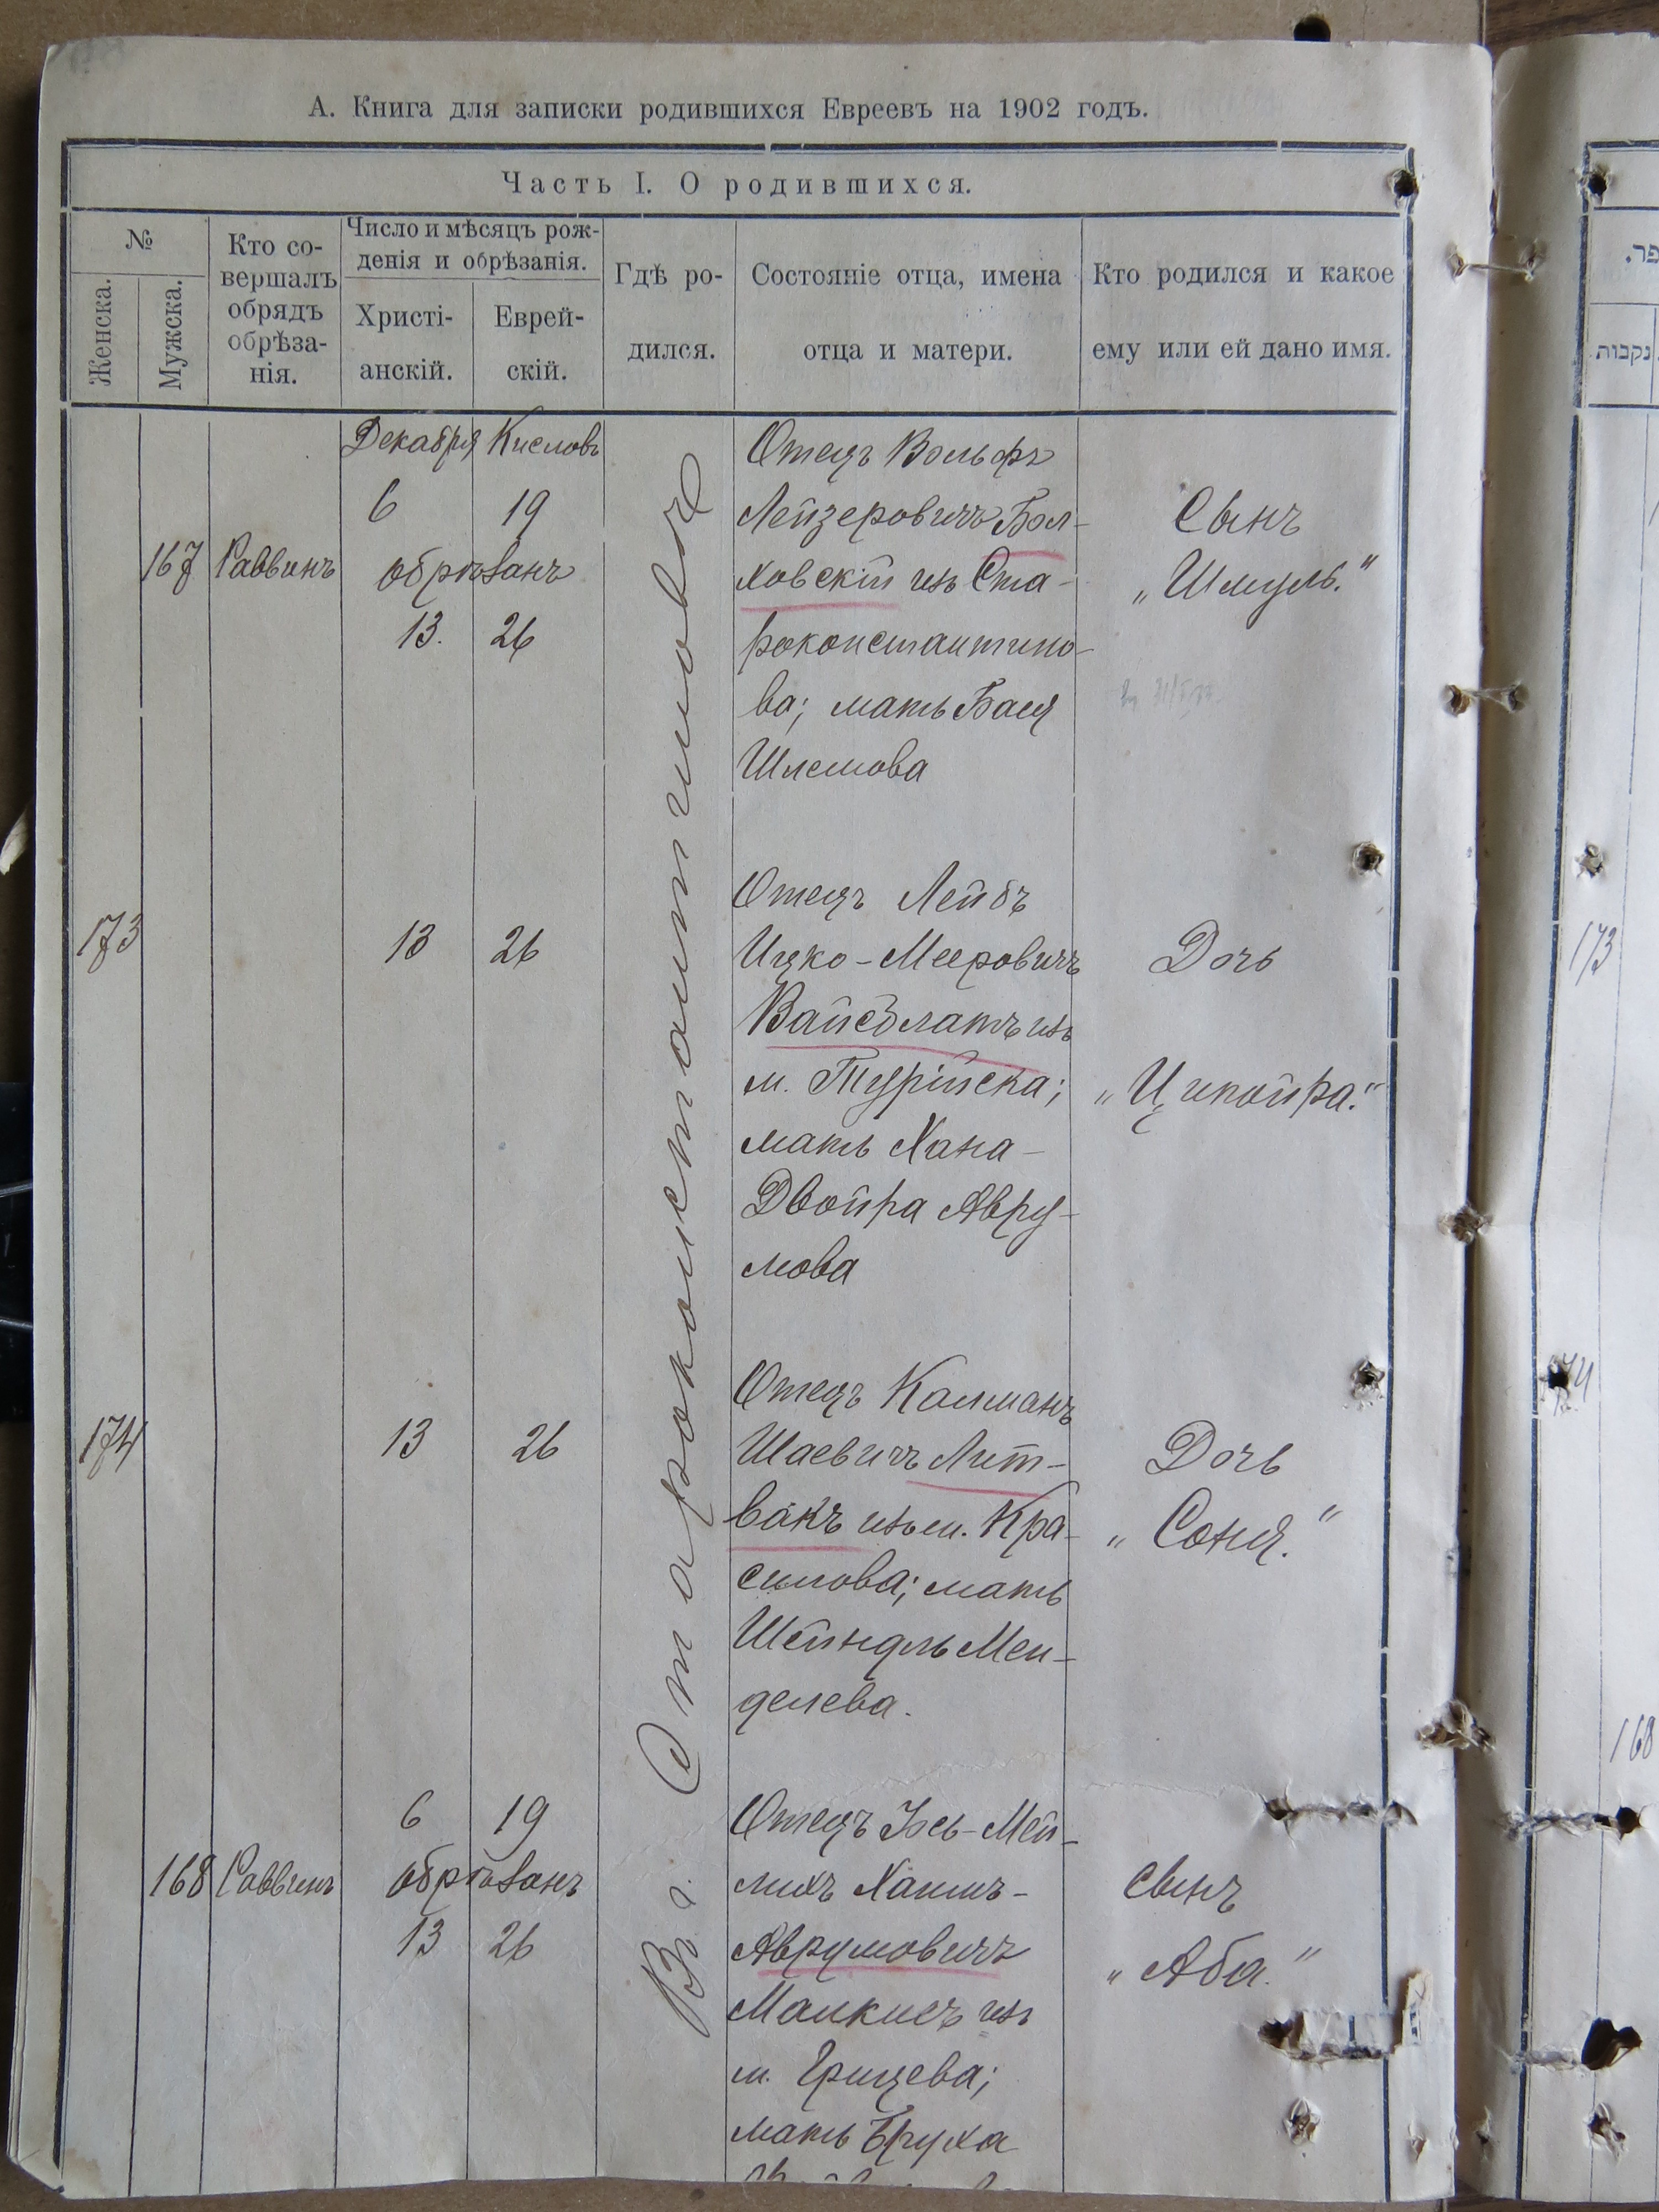 А. Книга для записки родившихся Евреевъ на 1902 годъ.
Часть I. О родившихся.
№
Женска.
Мужска.
Кто со-
вершалъ
обрядъ
обрѣза-
нія.
Число и мѣсяцъ рож-
денія и обрѣзанія.
Христі-
анскій.
Еврей-
скій.
Гдѣ ро-
дился.
Состояніе отца, имена
отца и матери.
Кто родился и какое
ему или ей дано имя.
Въ г. Староконстантиновѣ
167 Раввинъ
Декабря Кисловъ
6 19
обрѣзанъ
13. 26
Отецъ Вольфъ
Лейзеровичъ Бол-
ховскій изъ Ста-
роконстантино-
ва; мать Бася
Шлемова
Сынъ
„Шмуль.“
173
13 26
Отецъ Лейбъ
Ицко-Мееровичъ
Вайсблатъ изъ
м. Турійска;
мать Хана-
Двойра Авру-
мова
Дочь
„Ципойра.“
174
13 26
Отецъ Калманъ
Шаевичъ Лит-
вакъ изъ м. Кра-
силова; мать
Шейндль Мен-
делева.
Дочь
„Соня.“
168 Раввинъ
6 19
обрѣзанъ
13 26
Отецъ Іось-Мей-
лихъ Хаимъ-
Аврумовичъ
Малкисъ изъ
м. Грицева;
мать Бруха
Сынъ
„Аба.“
פר.
נקבות
173
174
168